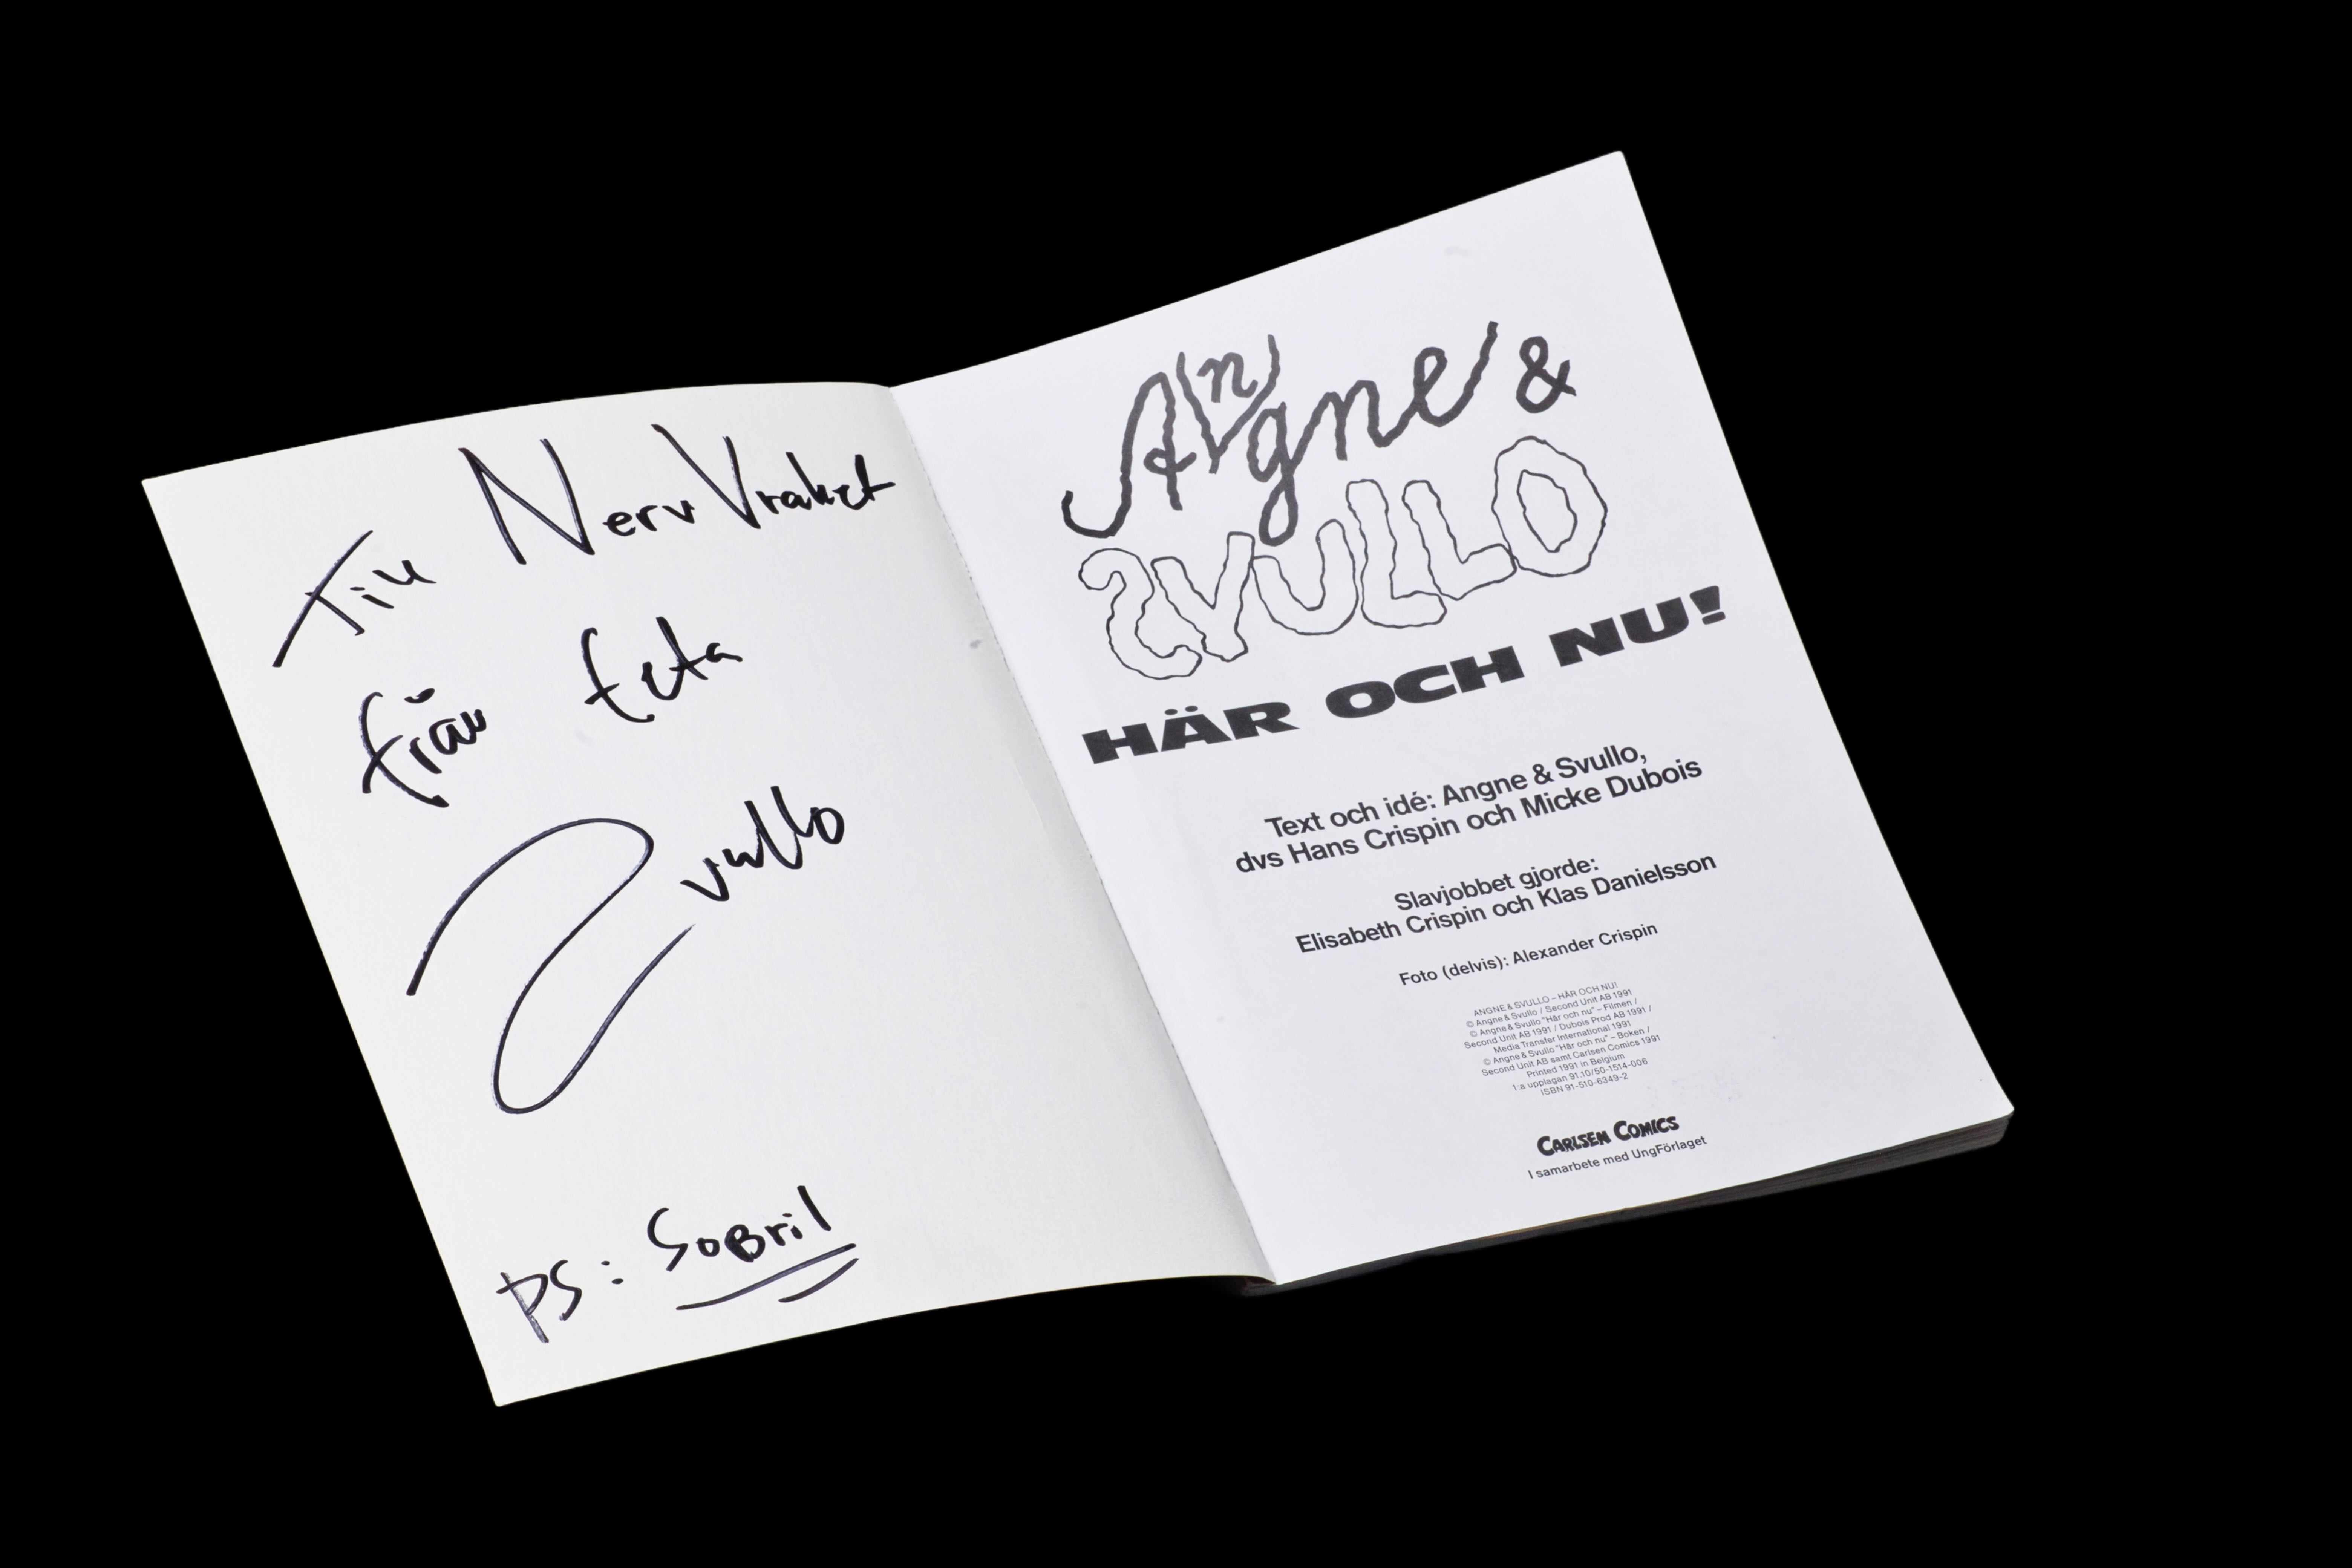 Till NervVraket
från feta
Svullo
PS: SoBril
A(n)gne &
SVULLO
HÄR OCH NU!
Text och idé: Angne & Svullo,
dvs Hans Crispin och Micke Dubois
Slavjobbet gjorde:
Elisabeth Crispin och Klas Danielsson
Foto (delvis): Alexander Crispin
ANGNE & SVULLO – HÄR OCH NU!
© Angne & Svullo / Second Unit AB 1991
© Angne & Svullo "Här och nu" – Filmen /
Second Unit AB 1991 / Dubois Prod AB 1991 /
Media Transfer International 1991
© Angne & Svullo "Här och nu" – Boken /
Second Unit AB samt Carlsen Comics 1991
Printed 1991 in Belgium
1:a upplagan 91.10/50-1514-006
ISBN 91-510-6349-2
CARLSEN COMICS
I samarbete med UngFörlaget